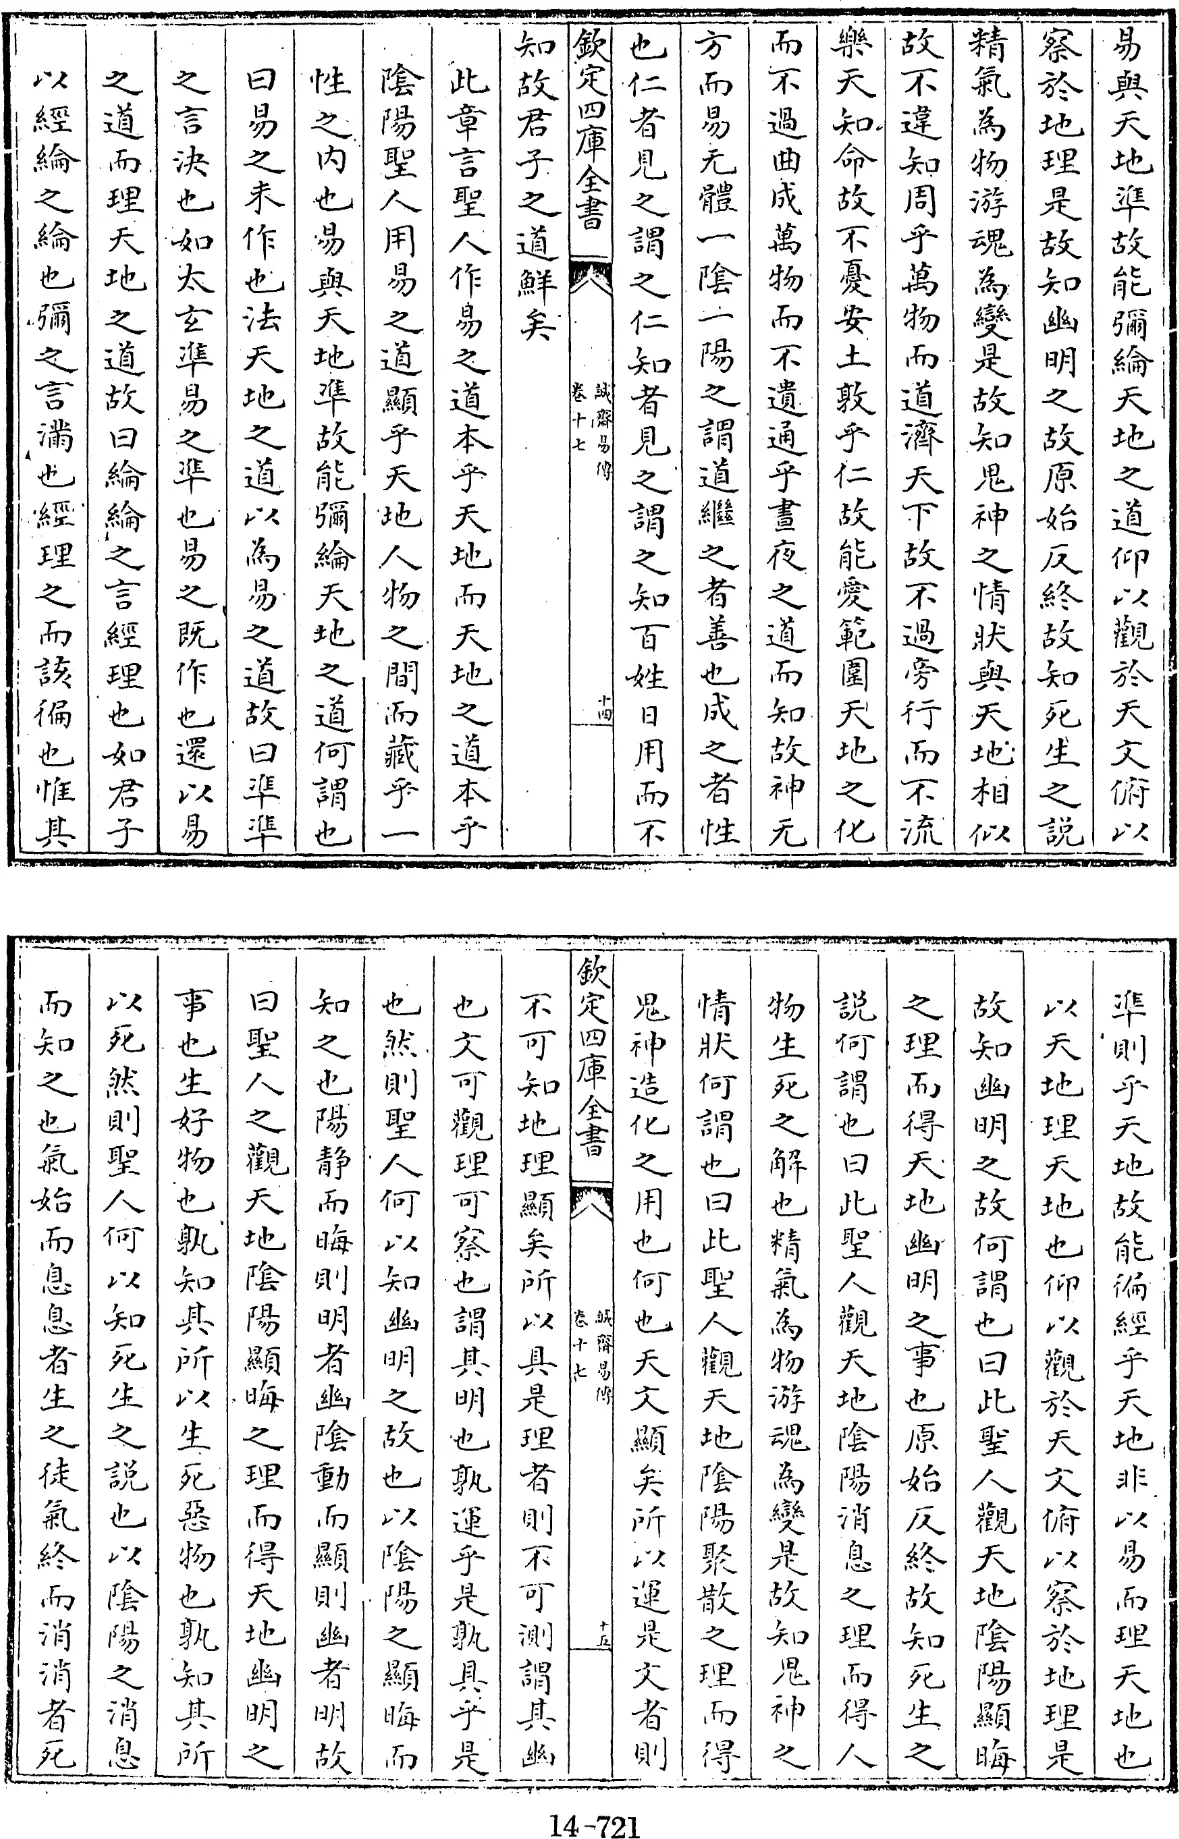 易與天地準故能彌綸天地之道仰以觀於天文俯以
察於地理是故知幽明之故原始反終故知死生之説
精氣為物游魂為變是故知鬼神之情狀與天地相似
故不違知周乎萬物而道濟天下故不過旁行而不流
樂天知命故不憂安土敦乎仁故能愛範圍天地之化
而不過曲成萬物而不遺通乎晝夜之道而知故神无
方而易无體一陰一陽之謂道繼之者善也成之者性
也仁者見之謂之仁知者見之謂之知百姓日用而不
欽定四庫全書
誠齋易傳
卷十七
十四
知故君子之道鮮矣
此章言聖人作易之道本乎天地而天地之道本乎
陰陽聖人用易之道顯乎天地人物之間而藏乎一
性之内也易與天地準故能彌綸天地之道何謂也
曰易之未作也法天地之道以為易之道故曰準準
之言決也如太玄準易之準也易之既作也還以易
之道而理天地之道故曰綸綸之言經理也如君子
以經綸之綸也彌之言滿也經理之而該徧也惟其
準則乎天地故能徧經乎天地非以易而理天地也
以天地理天地也仰以觀於天文俯以察於地理是
故知幽明之故何謂也曰此聖人觀天地陰陽顯晦
之理而得天地幽明之事也原始反終故知死生之
説何謂也曰此聖人觀天地陰陽消息之理而得人
物生死之解也精氣為物游魂為變是故知鬼神之
情狀何謂也曰此聖人觀天地陰陽聚散之理而得
鬼神造化之用也何也天文顯矣所以運是文者則
欽定四庫全書
誠齋易傳
卷十七
十五
不可知地理顯矣所以具是理者則不可測謂其幽
也文可觀理可察也謂其明也孰運乎是孰具乎是
也然則聖人何以知幽明之故也以陰陽之顯晦而
知之也陽静而晦則明者幽陰動而顯則幽者明故
曰聖人之觀天地陰陽顯晦之理而得天地幽明之
事也生好物也孰知其所以生死惡物也孰知其所
以死然則聖人何以知死生之説也以陰陽之消息
而知之也氣始而息息者生之徒氣終而消消者死
14-721